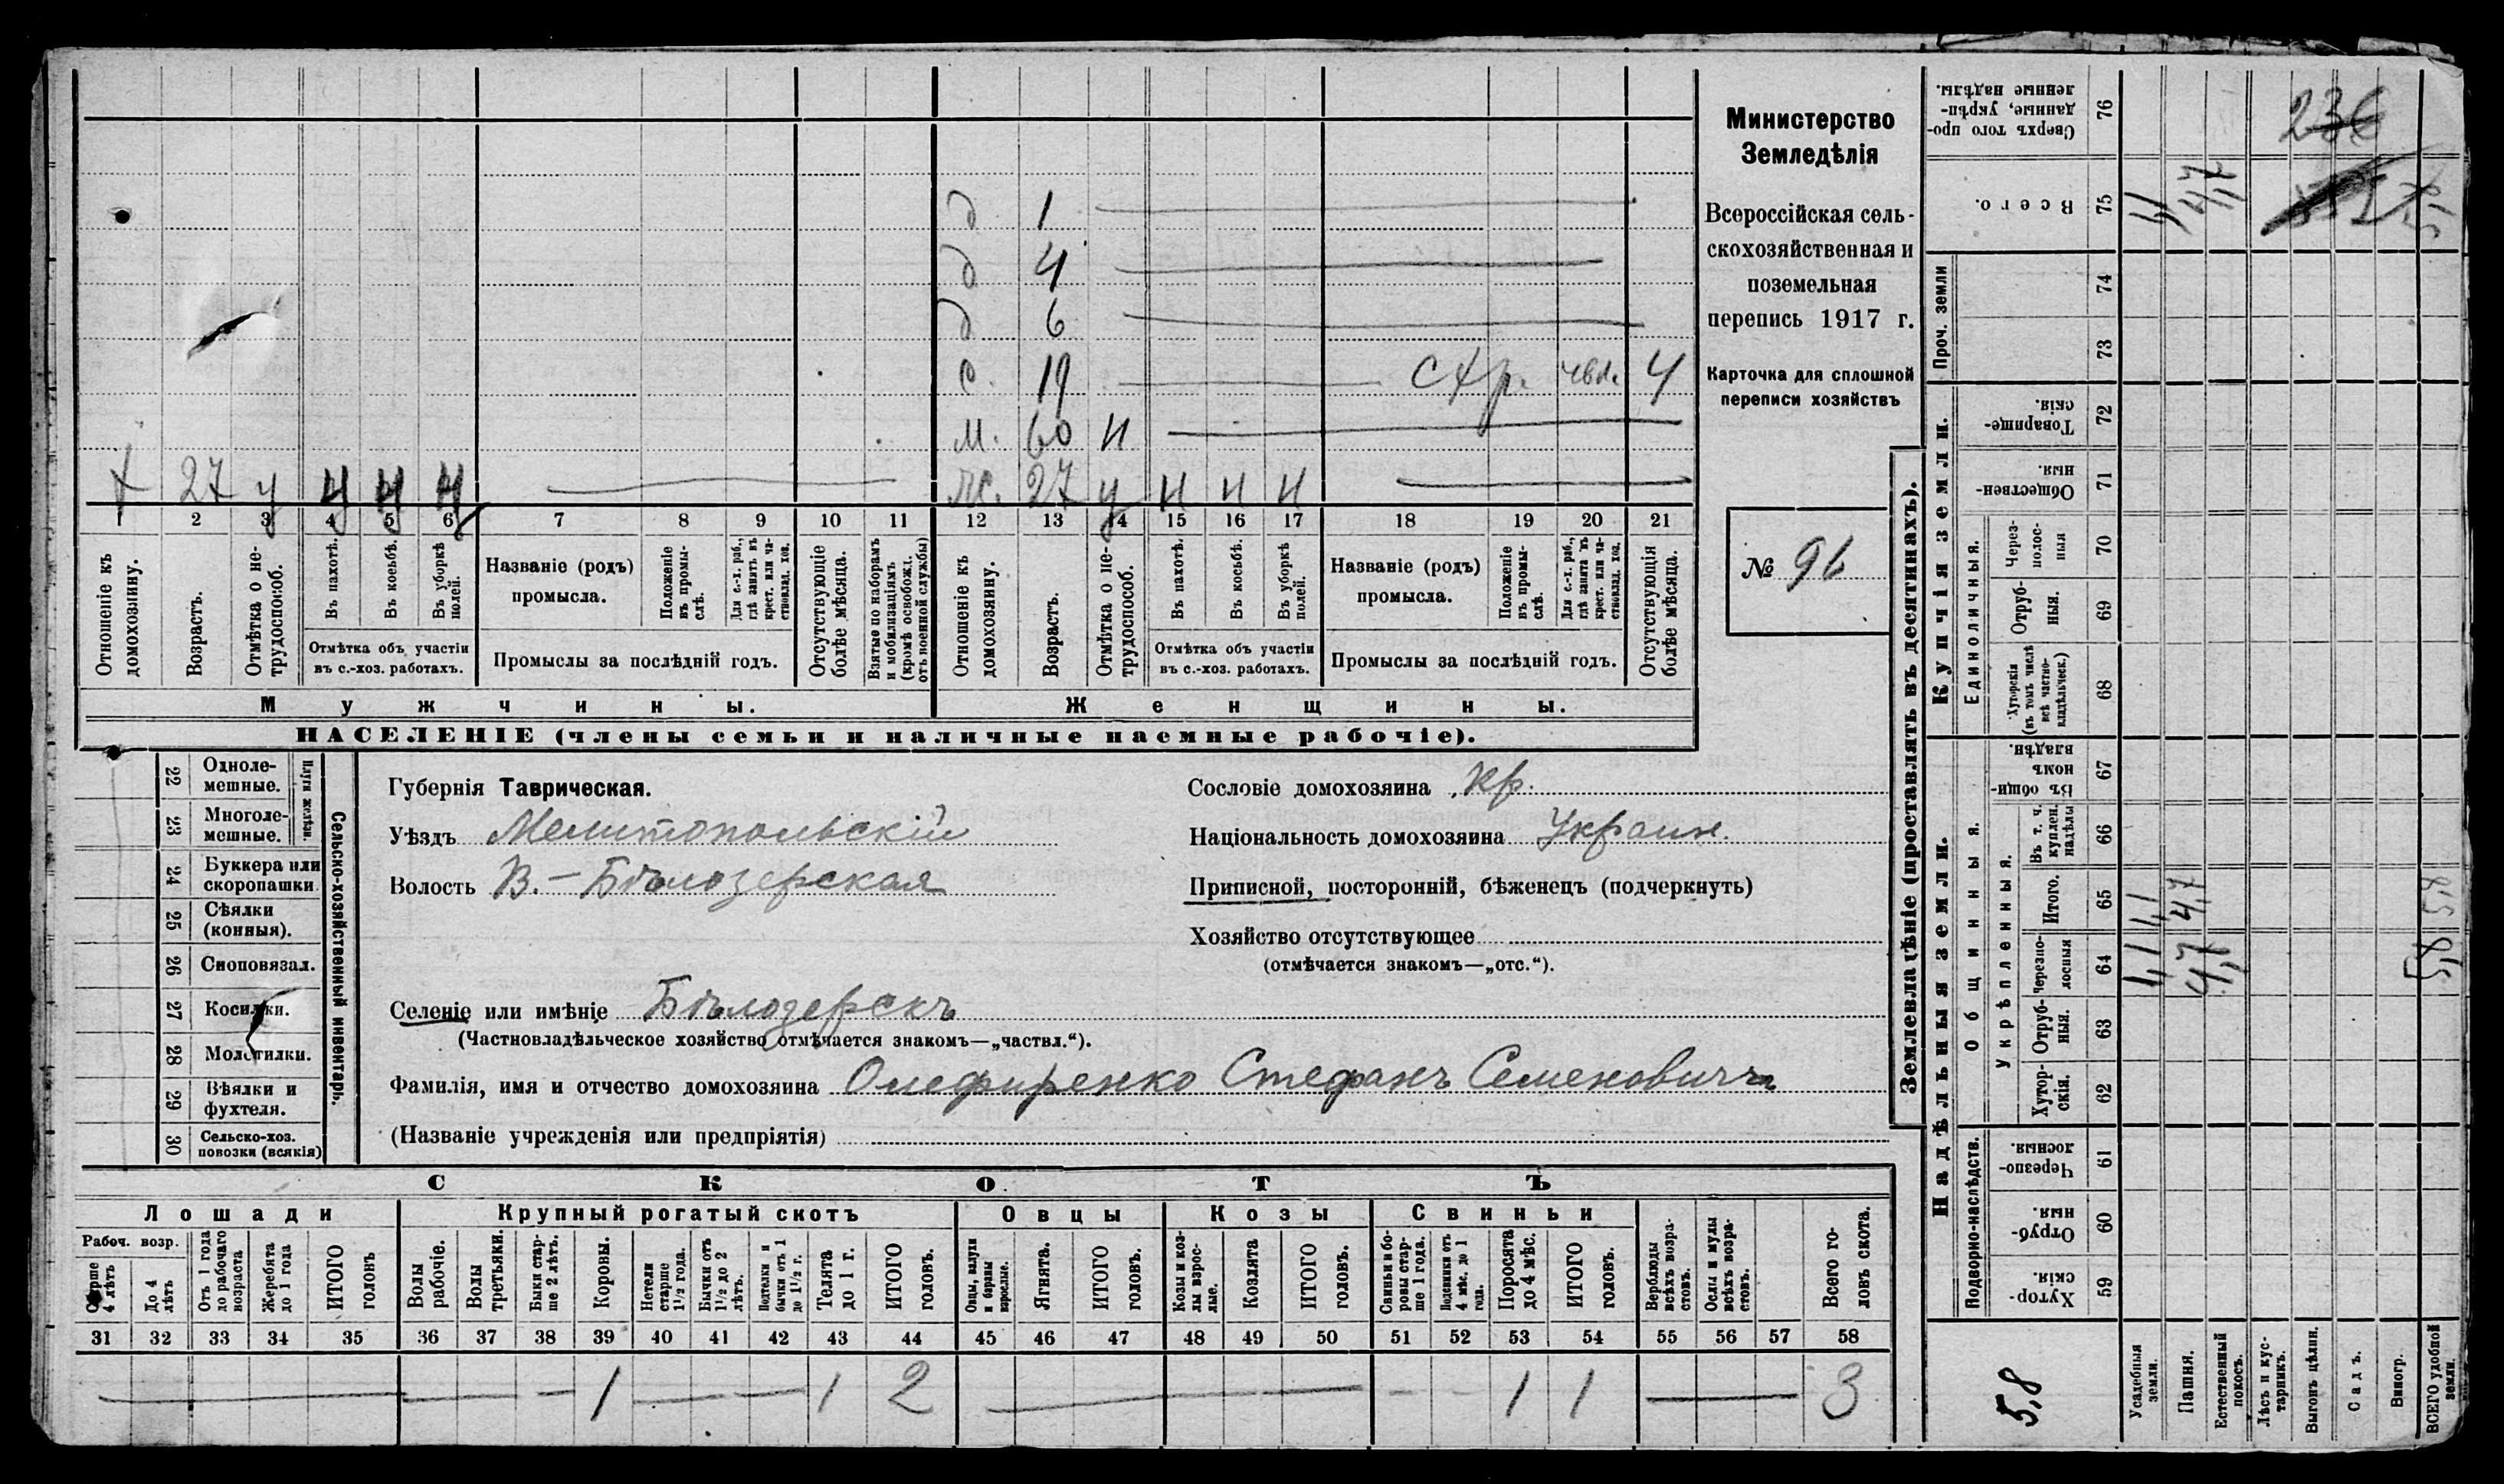 Министерство
Земледѣлія
Всероссійская сель-
скохозяйственная и
поземельная
перепись 1917 г.
Карточка для сплошной
переписи хозяйствъ
№ 96
д 1
д 4
д 6
с. 19 стр. 4
м. 60 н
х 27 у ч ч ч
ж. 27 у н н н
1 2 3 4 5 6 7 8 9 10 11 12 13 14 15 16 17 18 19 20 21
Отношеніе къ домохозяину.
Возрастъ.
Отмѣтка о не-трудоспособ.
Въ пахотѣ.
Въ косьбѣ.
Въ уборкѣ полей.
Отмѣтка объ участіи
въ с.-хоз. работахъ.
Названіе (родъ)
промысла.
Положеніе въ промы-слѣ.
Для с.-х. раб., гдѣ занятъ въ крест. или ча-стновлад. хоз.
Промыслы за послѣдній годъ.
Отсутствующіе болѣе мѣсяца.
Взятые по наборамъ и мобилизаціямъ (кромѣ освобожд. отъ военной службы)
Отношеніе къ домохозяину.
Возрастъ.
Отмѣтка о не-трудоспособ.
Въ пахотѣ.
Въ косьбѣ.
Въ уборкѣ полей.
Отмѣтка объ участіи
въ с.-хоз. работахъ.
Названіе (родъ)
промысла.
Положеніе въ промы-слѣ.
Для с.-х. раб., гдѣ занята въ крест. или ча-стновлад. хоз.
Промыслы за послѣдній годъ.
Отсутствующія болѣе мѣсяца.
Мужчины.
Женщины.
НАСЕЛЕНІЕ (члены семьи и наличные наемные рабочіе).
Сельско-хозяйственный инвентарь.
Плуги желѣзн.
22 Одноле-мешные.
23 Многоле-мешные.
24 Буккера или скоропашки
25 Сѣялки (конныя).
26 Сноповязал.
27 Косилки.
28 Молотилки.
29 Вѣялки и фухтеля.
30 Сельско-хоз. повозки (всякія)
Губернія Таврическая.
Уѣздъ Мелитопольскій
Волость В.-Бѣлозерская
Сословіе домохозяина кр.
Національность домохозяина Украин.
Приписной, посторонній, бѣженецъ (подчеркнуть)
Хозяйство отсутствующее
(отмѣчается знакомъ—„отс.“).
Селеніе или имѣніе Бѣлозерскъ
(Частновладѣльческое хозяйство отмѣчается знакомъ—„частвл.“).
Фамилія, имя и отчество домохозяина Олефиренко Стефанъ Семеновичъ
(Названіе учрежденія или предпріятія)
СКОТЪ
Лошади
Крупный рогатый скотъ
Овцы
Козы
Свиньи
Рабоч. возр.
Старше 4 лѣтъ
До 4 лѣтъ
Отъ 1 года до рабочаго возраста
Жеребята до 1 года
ИТОГО головъ
Волы рабочіе.
Волы третьяки.
Быки стар-ше 2 лѣтъ.
Коровы.
Нетели старше 1½ года.
Бычки отъ 1½ до 2 лѣтъ.
Подтелки и бычки отъ 1 до 1½ г.
Телята до 1 г.
ИТОГО головъ.
Овцы, валухи и бараны взрослые.
Ягнята.
ИТОГО головъ.
Козы и коз-лы взрос-лые.
Козлята
ИТОГО головъ.
Свиньи и бо-ровы стар-ше 1 года.
Подсвинки отъ 4 мѣс. до 1 года.
Поросята до 4 мѣс.
ИТОГО головъ.
Верблюды всѣхъ возра-стовъ.
Ослы и мулы всѣхъ возра-стовъ.
Всего го-ловъ скота.
31 32 33 34 35 36 37 38 39 40 41 42 43 44 45 46 47 48 49 50 51 52 53 54 55 56 57 58
1 1 2 1 1 3
Землевладѣніе (проставлять въ десятинахъ).
Надѣльныя земли.
Купчія земли.
Проч. земли
Подворно-наслѣдств.
Общинныя.
Укрѣпленныя.
Единоличныя.
Сверхъ того про-данные, укрѣп-ленные надѣлы. 76
Всего. 75 1,1 4,7
74
73
Товарище-скія. 72
Обществен-ныя. 71
Через-полос-ныя 70
Отруб-ныя. 69
Хуторскія (въ томъ числѣ всѣ частно-владѣльческ.) 68
Въ общи-номъ владѣн. 67
Въ т. ч. куплен. надѣлы 66
Итого. 65 1,1 4,7 5,8
Черезпо-лосныя 64 1,1 4,7 5,8
Отруб-ныя. 63
Хутор-скія. 62
Черезпо-лосныя. 61
Отруб-ныя. 60
Хутор-скія. 59
236
5,8
Усадебныя земли.
Пашня.
Естественный покосъ.
Лѣсъ и кус-тарникъ.
Выгонъ цѣлин.
Садъ.
Виногр.
ВСЕГО удобной земли.